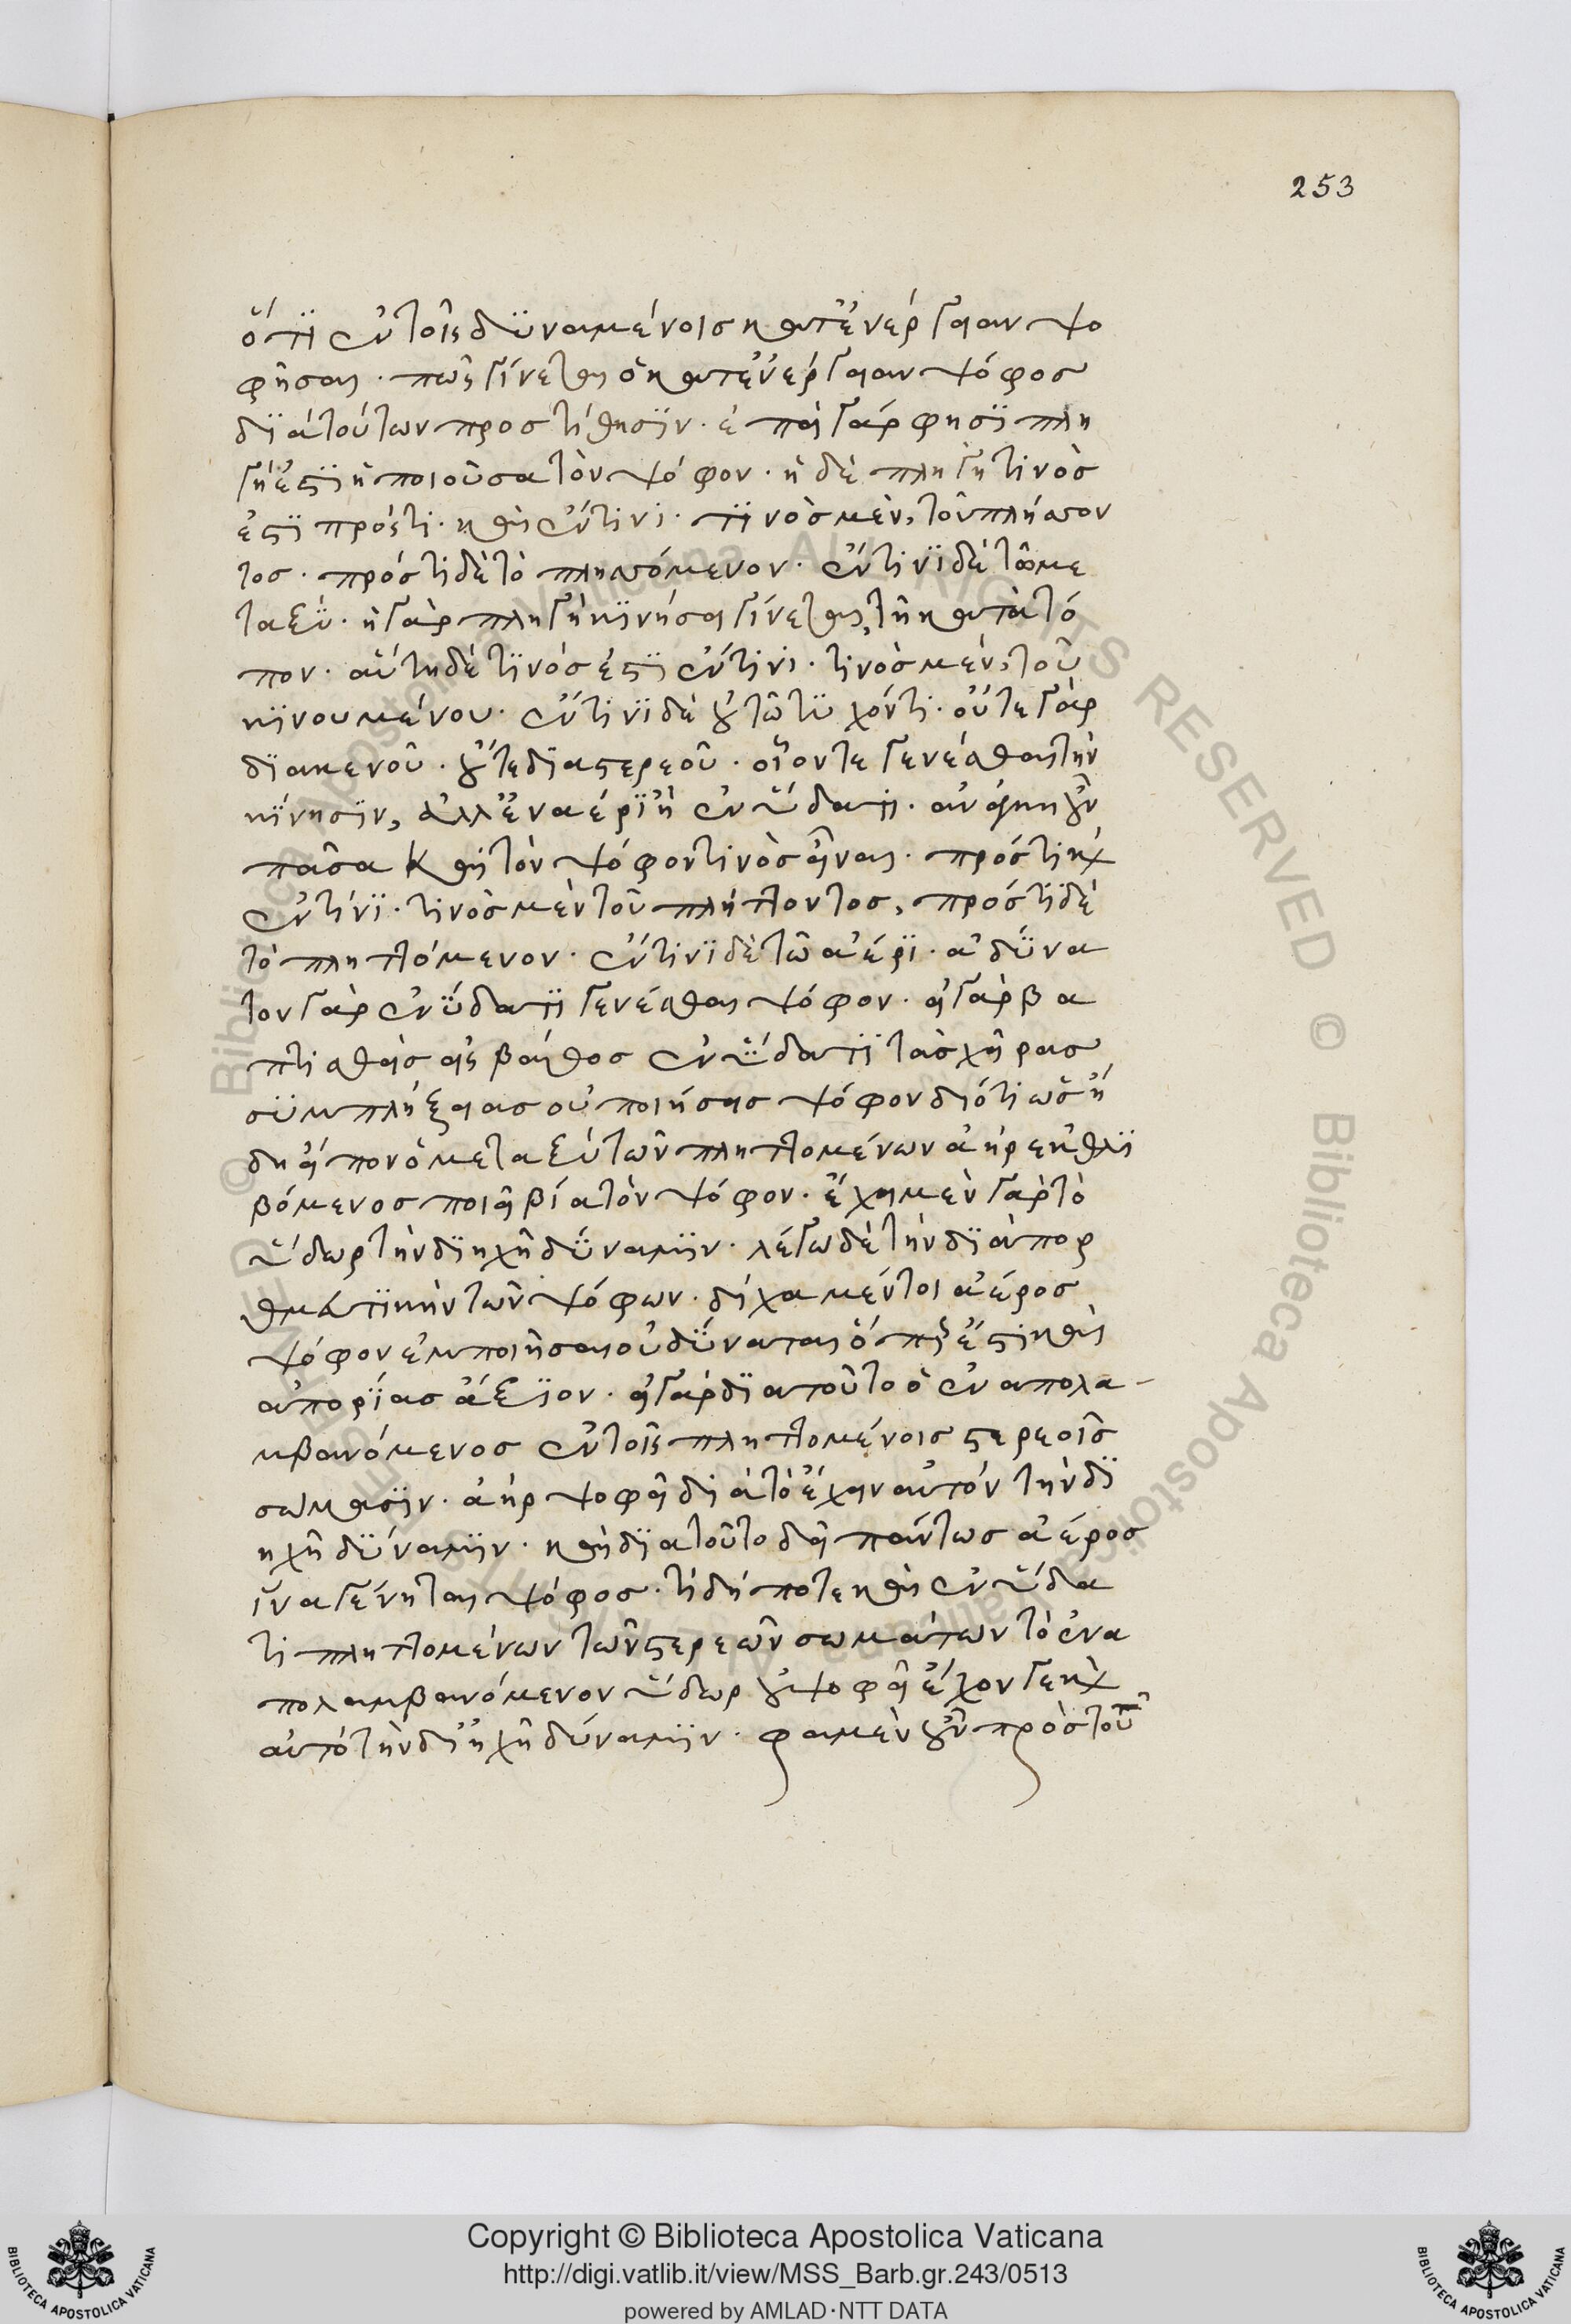 253
ὅτι ἐν τοῖς δϋναμένοισ κατ' ἐνέργειαν ψο
φῆσαι · πῶς γίνεται ὁ κατ' ἐνέργειαν ψόφοσ
δϊὰ τούτων προστίθησϊν · ἐπεὶ γάρ φησϊ πλη
γή ἐστϊ ἡ ποιοῦσα τὸν ψόφον · ἡ δὲ πληγή τινὸσ
ἐστϊ πρόστι · καὶ ἔν τινι · τϊνὸσ μὲν, τοῦ πλήττον
τοσ · πρόσ τι δὲ τὸ πληττόμενον · ἔν τινϊ δὲ τῶ με
ταξϋ · ἡ γὰρ πληγὴ κϊνήσει γίνεται, τῆ κατὰ τό
πον · αὕτη δέ τϊνόσ ἐστϊ ἔν τινι · τινὸσ μὲν, τοῦ
κϊνουμένου · ἔν τινϊ δὲ οὐ τῶ τϋχόντι · οὔτε γὰρ
δϊακενοῦ · οὔτε δϊαστερεοῦ · οἷον τε γενέσθαι τὴν
κίνησϊν, ἀλλ' ἐν αέρϊ ἢ ἐν ὕδατι · ανάγκη οὖν
πᾶσα καὶ τὸν ψόφον τινὸσ εἶναι · πρόσ τι καὶ
ἔν τινϊ · τινὸσ μὲν τοῦ πλήττοντοσ, πρόσ τϊ δὲ
τὸ πληττόμενον · ἔν τινϊ δὲ τῶ ἀέρϊ · ἀδϋνα
τον γὰρ ἐν ὕδατϊ γενέσθαι ψόφον · εἰ γὰρ βα
πτισθεὶσ εἰς βάθοσ ἐν ὕδατϊ τὰσ χεῖρασ
σϋμπλήξειασ οὐ ποιήσεισ ψόφον διότι ὡσ ἤ
δη εἶπον ὁ μεταξὺ τῶν πληττομένων ἀὴρ ἐκθλϊ
βόμενοσ ποιεῖ βία τὸν ψόφον · ἔχει μὲν γὰρ τὸ
ὕδωρ τὴν δϊηχῆ δϋναμϊν · λέγω δὲ τὴν δϊαπορ
θμευτϊκὴν τῶν ψόφων · δίχα μέντοι ἀέροσ
ψόφον ἐμποιῆσαι οὐ δϋναται ὅπερ ἐστι καὶ
απορίασ ἄξϊον · εἰ γὰρ δϊατοῦτο ὁ ἐναπολα-
μβανόμενοσ ἐν τοῖς πληττομένοισ στερεοῖσ
σώμασϊν · ἀὴρ ψοφεῖ διὰ τὸ ἔχειν αὐτὸν τὴν δϊ
ηχῆ δϋναμϊν · καὶ δϊατοῦτο δεῖ πάντωσ ἀέροσ
ἵνα γένηται ψόφοσ · τί δήποτε καὶ ἐν ὕδα
τι πληττομένων τῶν στερεῶν σωμάτων τὸ ἐνα
πολαμβανόμενον ὕδωρ οὐ ψοφεῖ ἔχον γε καὶ
αυτὸ τὴν δϊηχῆ δύναμϊν · φαμὲν οὖν πρὸσ τοῦ
Copyright © Biblioteca Apostolica Vaticana
http://digi.vatlib.it/view/MSS_Barb.gr.243/0513
powered by AMLAD·NTT DATA